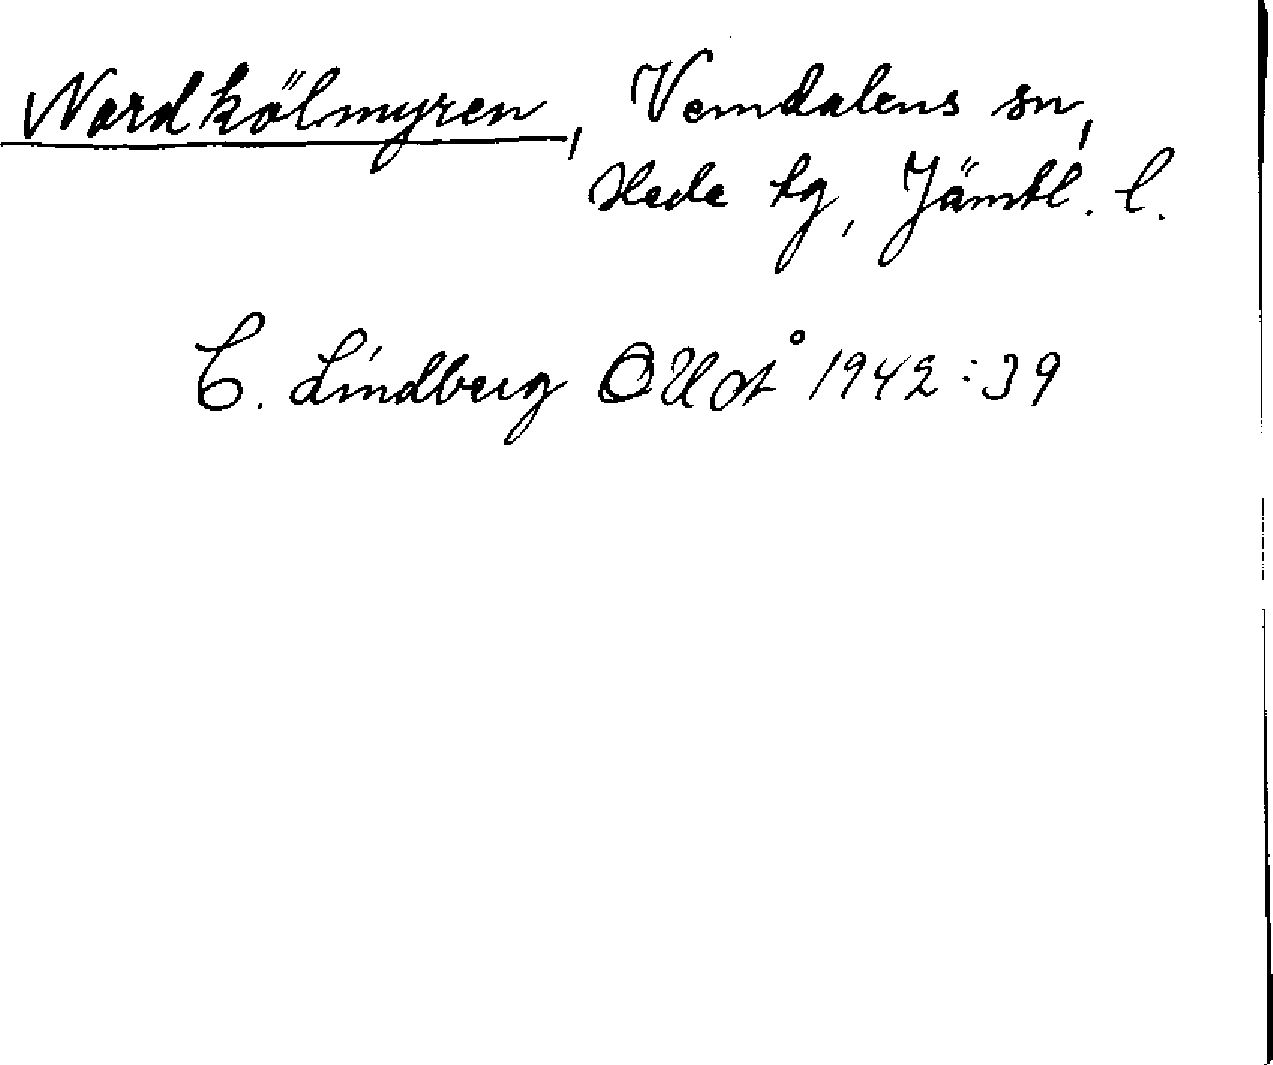 Nordkölmyren, Vemdalens sn,
Hede tg, Jämtl. l.
C. Lindberg OUÅ 1942:39